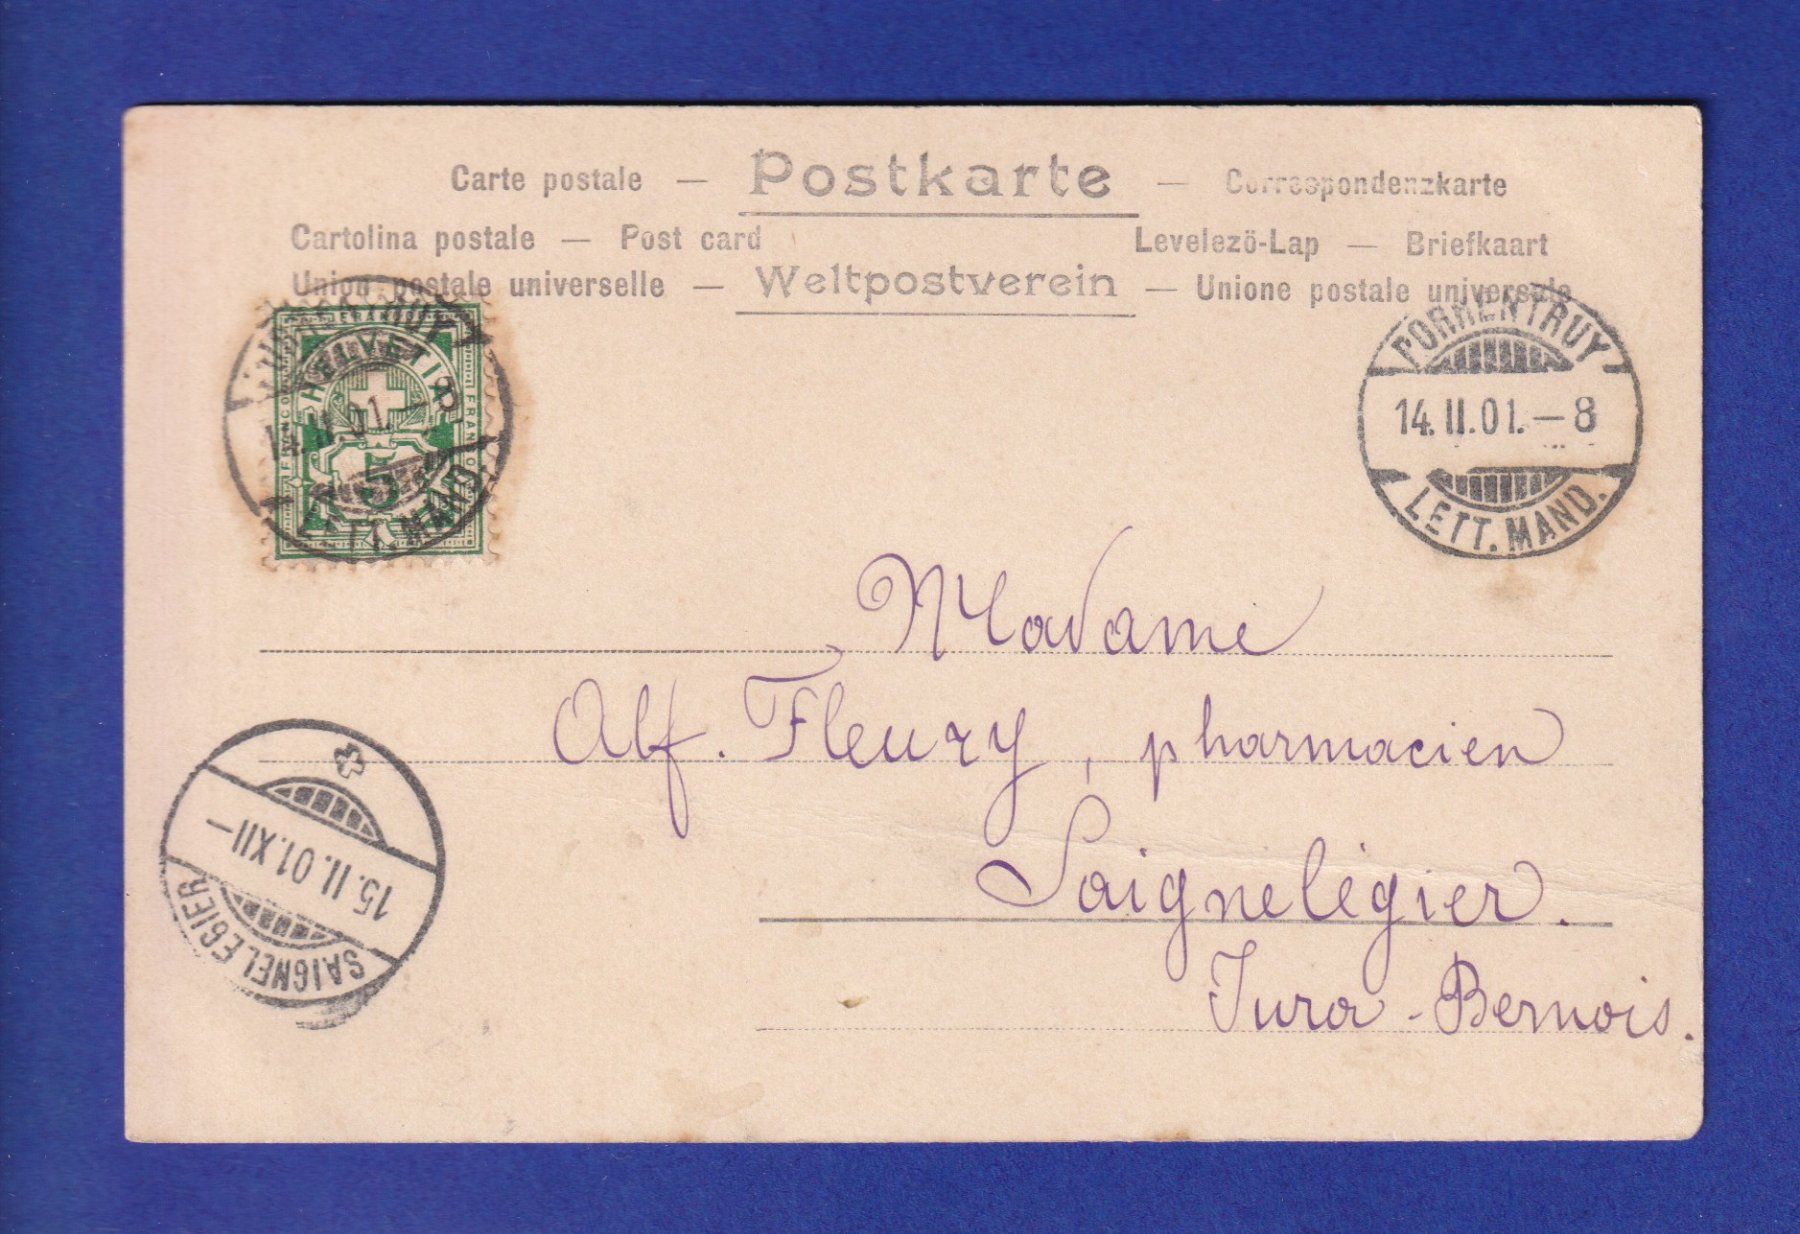 Carte postale — Postkarte — Correspondenzkarte
Cartolina postale — Post card Levelezö-Lap — Briefkaart
Union postale universelle — Weltpostverein — Unione postale universale
HELVETIA
FRANCO
FRANCO
5
14. II 01.—8
LETT. MAND.
PORRENTRUY
14. II. 01.—8
LETT. MAND.
Madame
Alf. Fleury, pharmacien
Saignelégier.
Jura-Bernois.
15. II. 01. XII—
SAIGNELEGIER